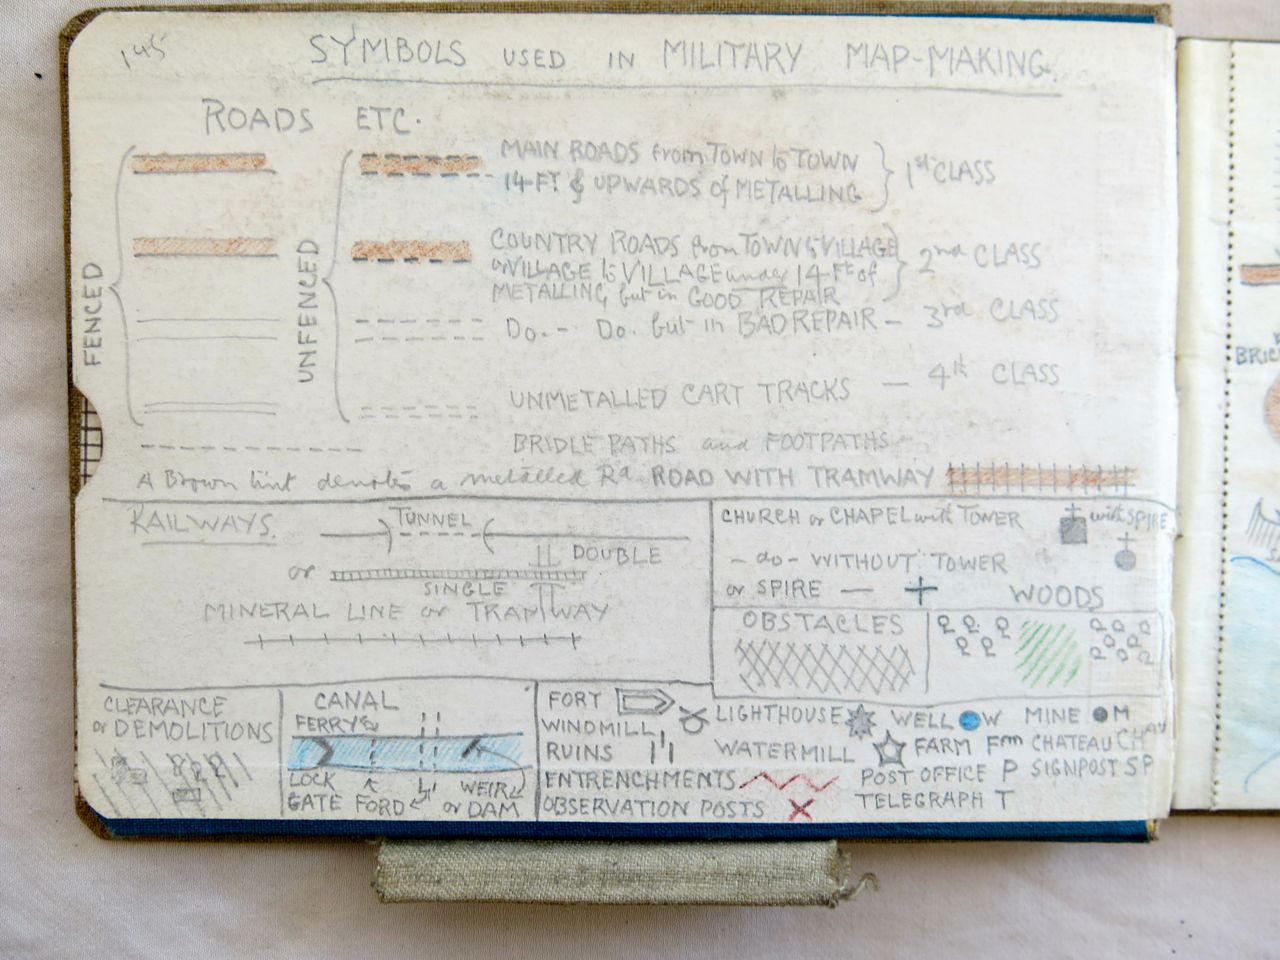 145
SYMBOLS USED IN MILITARY MAP-MAKING.
ROADS ETC.
FENCED
UNFENCED
MAIN ROADS from TOWN to TOWN
14 FT & UPWARDS of METALLING
1st CLASS
COUNTRY ROADS from TOWN to VILLAGE
or VILLAGE to VILLAGE under 14 Ft of
METALLING, but in GOOD REPAIR
2nd CLASS
Do. - Do. but in BAD REPAIR — 3rd CLASS
UNMETALLED CART TRACKS — 4th CLASS
BRIDLE PATHS and FOOTPATHS
A Brown tint denotes a metalled Rd. ROAD WITH TRAMWAY
RAILWAYS.
TUNNEL
DOUBLE
or
SINGLE
MINERAL LINE or TRAMWAY
CHURCH or CHAPEL with TOWER
with SPIRE
- do - WITHOUT TOWER
or SPIRE —
WOODS
OBSTACLES
CLEARANCE
or DEMOLITIONS
CANAL
FERRY
LOCK
GATE
FORD
WEIR
or DAM
FORT
WINDMILL
RUINS
ENTRENCHMENTS
OBSERVATION POSTS
LIGHTHOUSE
WELL W
MINE M
WATERMILL
FARM Fm
CHATEAU CHAU
POST OFFICE P
SIGNPOST SP
TELEGRAPH T